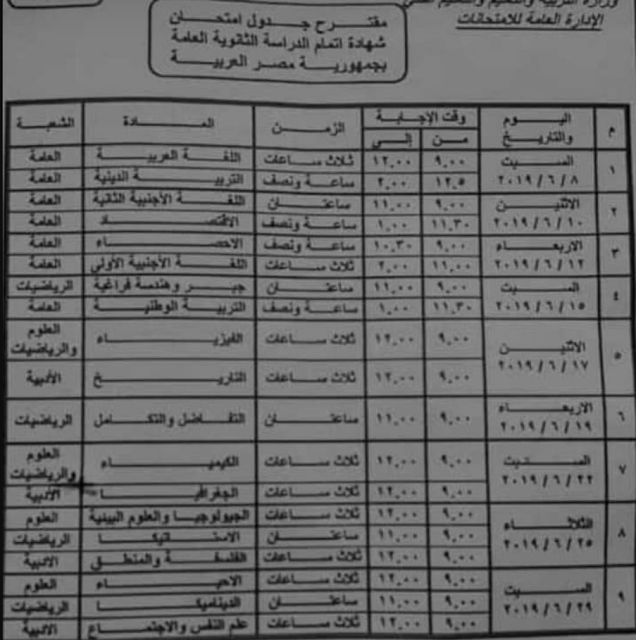 وزارة التربية والتعليم والتعليم الفني
الإدارة العامة للامتحانات
مقترح جدول امتحان
شهادة اتمام الدراسة الثانوية العامة
بجمهورية مصر العربية
م اليوم والتاريخ وقت الإجابة من إلى الزمن المادة الشعبة
١ السبت ٢٠١٩/٦/٨ ٩.٠٠ ١٢.٠٠ ثلاث ساعات اللغة العربية العامة
١٢.٥ ٢.٠٠ ساعة ونصف التربية الدينية العامة
٢ الاثنين ٢٠١٩/٦/١٠ ٩.٠٠ ١١.٠٠ ساعتان اللغة الأجنبية الثانية العامة
١١.٣٠ ١.٠٠ ساعة ونصف الاقتصاد العامة
٣ الاربعاء ٢٠١٩/٦/١٢ ٩.٠٠ ١٠.٣٠ ساعة ونصف الاحصاء العامة
١١.٠٠ ٢.٠٠ ثلاث ساعات اللغة الأجنبية الأولى العامة
٤ السبت ٢٠١٩/٦/١٥ ٩.٠٠ ١١.٠٠ ساعتان جبر وهندسة فراغية الرياضيات
١١.٣٠ ١.٠٠ ساعة ونصف التربية الوطنية العامة
٥ الاثنين ٢٠١٩/٦/١٧ ٩.٠٠ ١٢.٠٠ ثلاث ساعات الفيزياء العلوم والرياضيات
٩.٠٠ ١٢.٠٠ ثلاث ساعات التاريخ الأدبية
٦ الاربعاء ٢٠١٩/٦/١٩ ٩.٠٠ ١١.٠٠ ساعتان التفاضل والتكامل الرياضيات
٧ السبت ٢٠١٩/٦/٢٢ ٩.٠٠ ١٢.٠٠ ثلاث ساعات الكيمياء العلوم والرياضيات
٩.٠٠ ١٢.٠٠ ثلاث ساعات الجغرافيا الأدبية
٨ الثلاثاء ٢٠١٩/٦/٢٥ ٩.٠٠ ١٢.٠٠ ثلاث ساعات الجيولوجيا والعلوم البيئية العلوم
٩.٠٠ ١١.٠٠ ساعتان الاستاتيكا الرياضيات
٩.٠٠ ١٢.٠٠ ثلاث ساعات الفلسفة والمنطق الأدبية
٩ السبت ٢٠١٩/٦/٢٩ ٩.٠٠ ١٢.٠٠ ثلاث ساعات الاحياء العلوم
٩.٠٠ ١١.٠٠ ساعتان الديناميكا الرياضيات
٩.٠٠ ١٢.٠٠ ثلاث ساعات علم النفس والاجتماع الأدبية